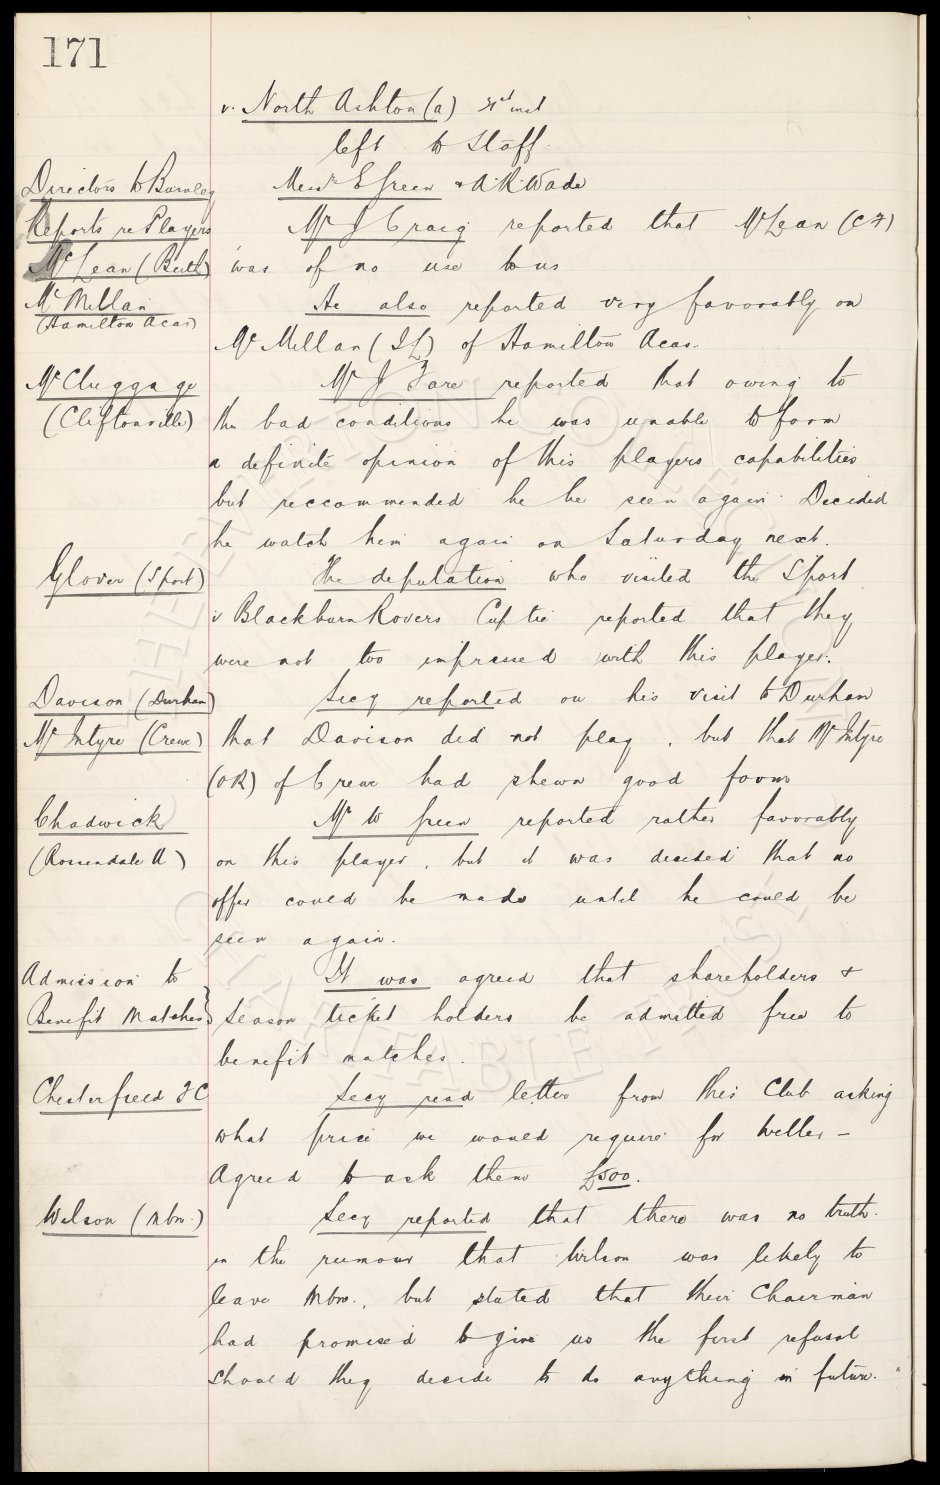 171
v. North Ashton (a) 21st inst
left to Staff.
Directors to Burnley Messrs E Green & A.R. Wade
Reports re Players Mr J Craig reported that McLean (CF)
McLean (Beith) was of no use to us
McMillan He also reported very favorably on
(Hamilton Acas) McMillan (IL) of Hamilton Acas.
McCluggage Mr J Fare reported that owing to
(Cliftonville) the bad conditions he was unable to form
a definite opinion of this players capabilities
but reccommended he be seen again. Decided
he watch him again on Saturday next.
Glover (Sport) The deputation who visited the Sport
v Blackburn Rovers Cup tie reported that they
were not too impressed with this player.
Davison (Durham) Secy reported on his visit to Durham
McIntyre (Crewe) that Davison did not play, but that McIntyre
(OR) of Crewe had shewn good form
Chadwick Mr W Green reported rather favorably
(Rossendale U) on this player, but it was decided that no
offer could be made until he could be
seen again.
Admission to It was agreed that shareholders &
Benefit Matches} Season ticket holders be admitted free to
benefit matches.
Chesterfield FC Secy read letter from this Club asking
what price we would require for Weller –
Agreed to ask them £500.
Wilson (Mbro.) Secy reported that there was no truth
in the rumour that Wilson was likely to
leave Mbro., but stated that their Chairman
had promised to give us the first refusal
should they decide to do anything in future.